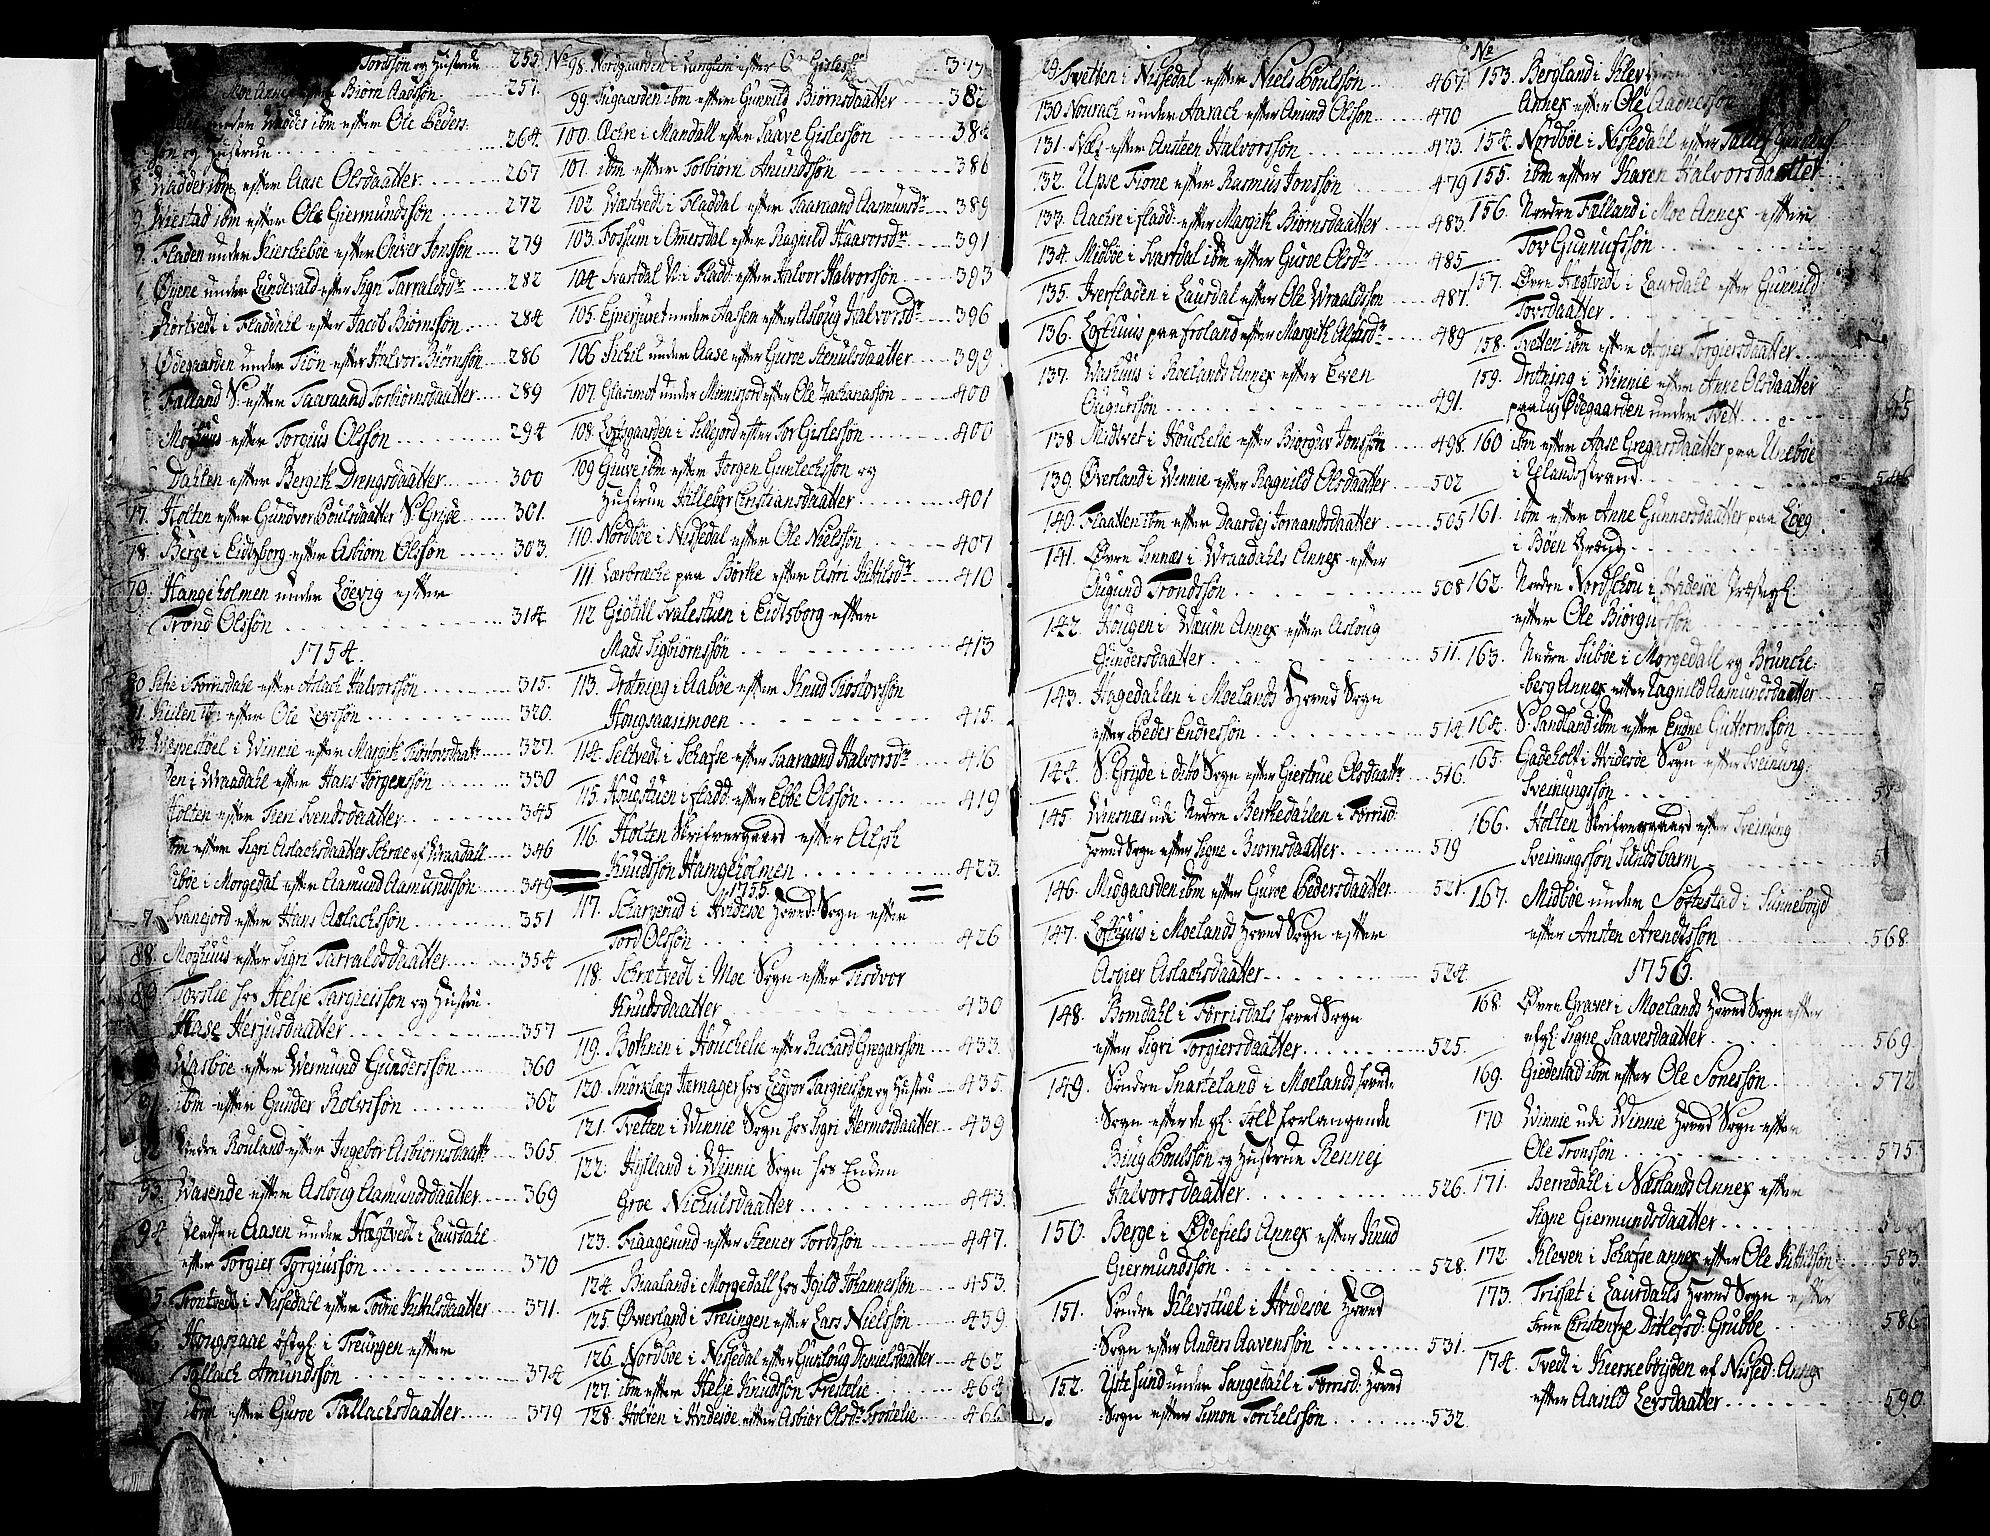 Tordsøn og Hustrue 255
Moe Annex efter Biørn Aadsøn 257
under Wadder ibm efter Ole Peders:
søn og Hustrue 264
Wadder ibm efter Aase Olsdaatter 267
Wiestad ibm efter Ole Giermundssøn 272
Fladen under Kierckebøe efter Olever Jonssøn 279
Øyene under Lundevald efter Sigri Tarraldsdr 282
Hortvedt i Fladdahl efter Jacob Biørnsøn 284
Ødegaarden under Tiøn efter Halvor Biørnsøn 286
Falland S: efter Taaraand Torbiornsdaatter 289
Moghuus efter Torgius Olssøn 294
Dahlen efter Bergith Drengsdaatter 300
77. Holten efter Gundvor Poulsdaatter N: Gryde 301.
78. Berge i Eidsborg efter Asbiorn Olsson 303.
79. Hangeholmen under Löevig efter
Trond Olssøn 314
1754.
80 Setie i Forrisdahl efter Aslach Halvorssøn 315.
efter Ole Levssøn 320.
i Winnie efter Margith Tiostovsdaattr 327.
i Wraadahl efter Hans Jørgenssøn 330
Holten efter Kien Svendsdaatter 345
ibm efter Sigri Aslachsdaatter Schræ af Wraadall 346
Subøe i Morgedal efter Aamund Aamundssøn 349
7. Svanejord efter Hans Aslachssøn 351
88. Moghuus efter Sigri Tarraldsdaatter 354
89. Torslie hos Helje Targieissøn og Hustru
Aase Herjusdaatter 357
Wasbøe efter Wermund Gunderssøn 360
91. ibm efter Gunder Rolvssøn 362
92 Søndre Rouland efter Ingebor Asbiørnsdaattr 365.
93. Wasende efter Asloug Aamundsdaatter 369
94. Pladsen Aasen under Hægtvedt i Laurdahl
efter Torgier Torgiussøn 370
95. Trontvedt i Nissedahl efter Torie Kittilsdaatter 371.
Hougsgaae i Treungen efter
Tallach Amundssøn 374
ibm efter Guroe Tallachsdaatter 379
No 98. Nordgaarden i efter O Gislessr 379
99. Sugaarden ibm efter Gunnild Biørnsdaatter 382
100. Achre i Mandall efter Saave Gislessøn 384
101. ibm efter Torbiørn Anundssøn 386
102 Wæstvedt i Fladdal efter Taaraand Aasmundsdr 389
103. Fossum i Omersdal efter Ragnild Haavorsdr 391
104. Svartdal N: i Fladd: efter Halvor Halvorssøn 393
105. Ejverjuvet under Aassem efter Asloug Halvorsdr 396
106 Sichil under Aase efter Guroe Stenulsdaatter 399
107. Glasmot under Monnejord efter Ole Zachariassøn 400
108. Løgsgaarden i Sillejord efter Tor Gislessøn 400
109 Giuve ibm efter Jorgen Gunlechssøn og
Hustrue Hillebor Cristiansdaatter 401
110. Nordbøe i Nissedal efter Ole Nielssøn 407
111. Lærbræche paa Børte efter Aasri Kittilsdr 410
112 Giøtill Svalestuen i Eidtsborg efter
Mads Sigbiørnssøn 413
113. Drotning i Aabøe efter Knud Tiostovsøn
Hougsaasimoen 415.
114. Seltvedt i Schafse efter Taaraand Halvorsdr 416
115. Hougstuen i Fladd: efter Ebbe Olssøn 419
116. Holten Skrifvergaard efter Alf
Knudssøn Hangeholmen 423.
1755.
117. Scharperud i Hvidesøe Hoved: Sogn efter
Tord Olssøn 426
118. Schrætvedt i Moe Sogn efter Tiodvor
Knudsdaatter 430
119. Bothnen i Houchelie efter Richard Gregarssøn 433.
120. Snorklap Harnager hos Ledvor Targieissøn og Hustru 435.
121. Tvetten i Winnie Sogn hos Sigri Hermosdaatter 439
122: Hytland i Winnie Sogn hos Enchen
Groe Nichulsdaatter 443.
123. Traagesund efter Steener Tordssøn 447.
124. Braaland i Morgedall hos Igild Johannessøn 453.
125. Øverland i Treungen efter Lars Nielssøn 459
126. Nordbøe i Nissedal efter Gunloug Danielsdaatter 462
127. ibm efter Helje Knudssøn Fretelie 464
128. Holten i Hvidesøe efter Asbior Olsdr Tronelie 466
29 Tvetten i Nissedal efter Niels Poulssøn 467.
130 Nourach under Harach efter Anund Olssøn 470
131. Næs efter Ansteen Halvorssøn 473.
132. Upse Tione efter Rasmus Jonssøn 479
133. Aachre i fladd: efter Margith Biornsdaatter 483.
134. Midbøe i Svartdal ibm efter Guroe Olsdr 485
135. Iverfladen i Laurdal efter Ole Wraaldsøn 487.
136. Lofthuus paa Froland efter Margith Alfsdr 489
137. Washuus i Roelands Annex efter Even
Gugurssøn 491.
138. Midtvet i Houchelie efter Biorgus Jonssøn 498.
139. Øverland i Winnie efter Ragnild Olsdaatter 502
140. Flaatten ibm efter Daardej Joraandsdaatter 505
141. Øvre Sennæs i Wraadahls Annex efter
Ougund Trondssøn 508
142. Hougen i Wæum Annex efter Asloug
Gundersdaatter 511.
143. Hagedahlen i Moelands Hoved Sogn
efter Peder Endressøn 514
144. S: Gryde i dito Sogn efter Giertrue Olsdaattr 516.
145. Winsnæs udi Nedre Berkedahlen i Forrisd:
Hoved Sogn efter Signe Biornsdaatter 519
146. Midgaarden ibm efter Guroe Pedersdaatter 521.
147. Lofthuus i Moelands Hoved Sogn efter
Asgier Aslachsdaatter 524.
148. Bomdahl i Forrisdals Hoved Sogn
efter Sigri Torgiersdaatter 525.
149. Søndre Snarteland i Moelands Hoved:
Sogn efter de gl: Folk forlangende
Biug Poulssøn og Hustrue Rennej
Halvorsdaatter 526.
150. Berge i Ødefiels Annex efter Knud
Giermundssøn 528.
151. Søndre Klevstuel i Hvidesøe Hoved
Sogn efter Anders Aavenssøn 531.
152. Ytte Sund under Langedahl i Forrisd: Hoved
Sogn efter Simon Torchelssøn 532.
No
153. Bergland i Klev
Annex efter Ole Aadnessøn
154. Nordbøe i Nissedahl efter Tallef
155. ibm efter Karen Halvorsdaatter
156. Nordre Falland i Moe Annex efter
Tov Gunnufssøn
157. Øvre Hægtvedt i Laurdahl efter Gunnild
Tovsdaatter
158. Tvetten ibm efter Asgier Torgiersdaatter
159. Drotning i Winnie efter Anne Olsdaatter
paalig Ødegaarden under Tvett 545
160 ibm efter Aase Gregarsdaatter paa Unebøe
i Yslandsstrand 546
161. ibm efter Anne Gunnersdaatter paa Löeg
i Bøen
162. Nordre Nordschou i Hvidesøe Præstegl:
efter Ole Biorgussøn
163. Nedre Subøe i Morgedall og Brunche:
berg Annex efter Ragnild Aamundsdaatter
164. S: Sandland ibm efter Endre Guttormsøn
165. Gadeholt i Hvidesøe Sogn efter Sveinung
Sveinungssøn
166. Holten Skrifvergaard efter Sveinung
Sveinungssøn Sundsbarm
167. Midbøe under Sortestad i Sunnebøyd
efter Ansten Arendssøn 568.
1756.
168. Øvre Graver i Moelands Hoved Sogn efter
afgl: Signe Saavesdaatter 569
169. Giedestad ibm efter Ole Sonessøn 572
170 Winnie udi Winnie Hoved Sogn efter
Ole Tronssøn 575
171. Berredahl i Næslands Annex efter
Signe Giermundsdaatter
172. Kleven i Schafse annex efter Ole Kittilsøn 583.
173. Trisæt i Laurdahls Hoved Sogn efter
Frue Christentze Ditlefsd: Grubbe 586
174. Tvedt i Kierkebøyden af Nissed: Annex
efter Aasild Levsdaatter 590